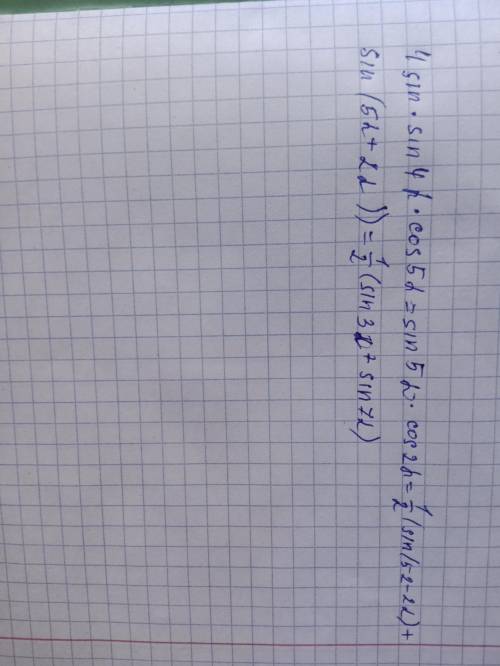 4 sin · sin 4α · cos 5α = sin 5α · cos 2α = 1/2 (sin(5α-2α) +
sin (5α + 2α)) = 1/2 (sin 3α + sin 7α)